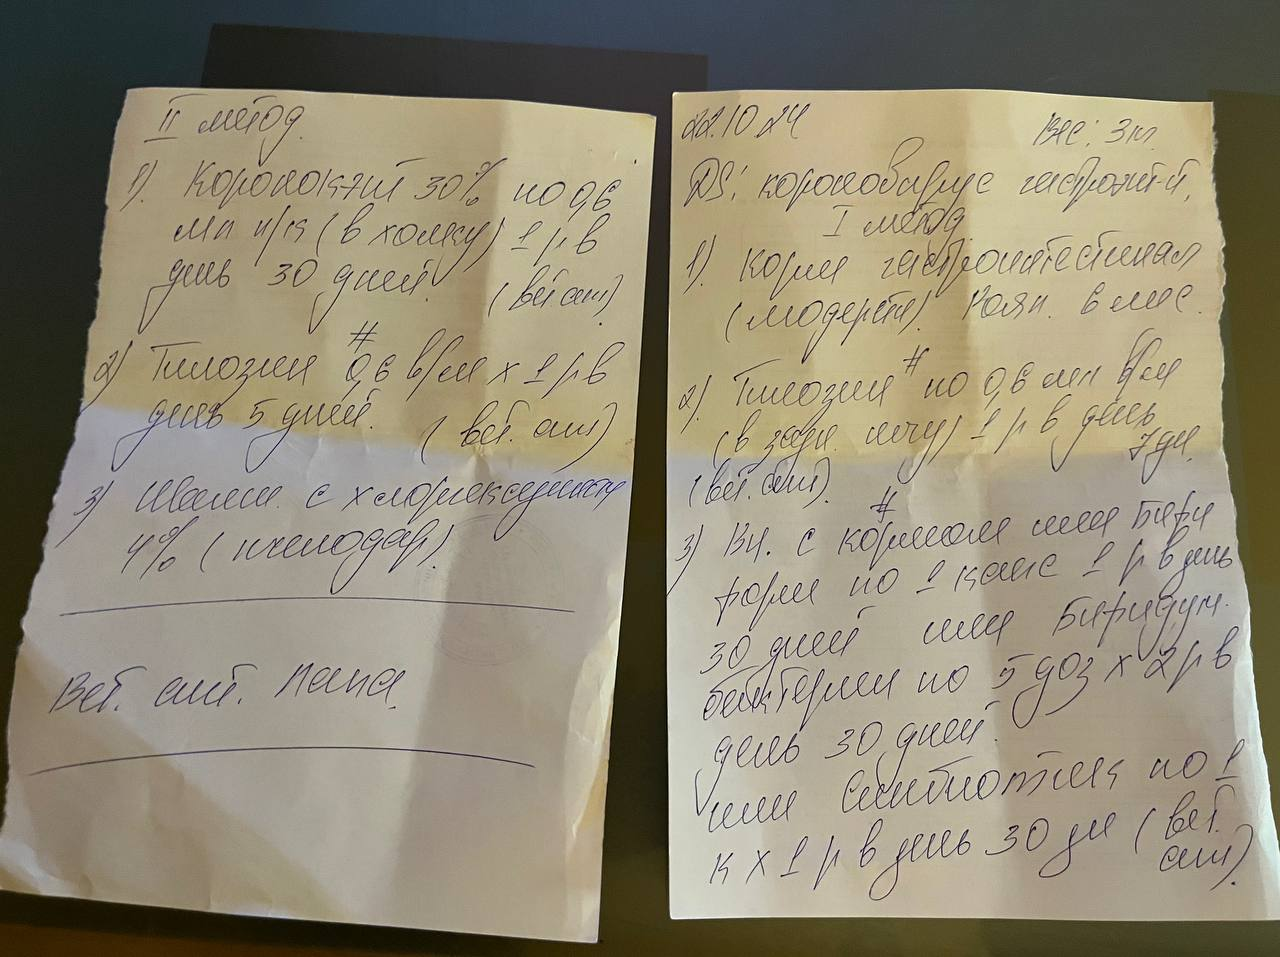 II метод.
1). Коронокэт 30% по 0,6
мл п/к (в холку) 1 р в
день 30 дней.
(вет. апт).
#
2) Тилозин 0,6 в/м х 1 р в
день 5 дней.
(вет. апт)
3) Шамп. с хлоргексидином
4% (пчелодар).
Вет. апт.
22.10 24
Вес: 3кг.
DS: коронавирус гастроэнт-т,
I метод
1). Корм гастроинтестинал
(модерейт). 6 мес.
#
2). Тилозин по 0,6 мл в/м
(в задн. мчу) 1 р в день
7 дн.
(вет. апт).
#
3) Вн. с кормом или Бифи
форм по 1 капс 1 р в день
30 дней или Бифидум
бактерин по 5 доз х 2 р в
день 30 дней.
или Симбиотик по 1
к х 1 р в день 30 дн (вет.
апт).